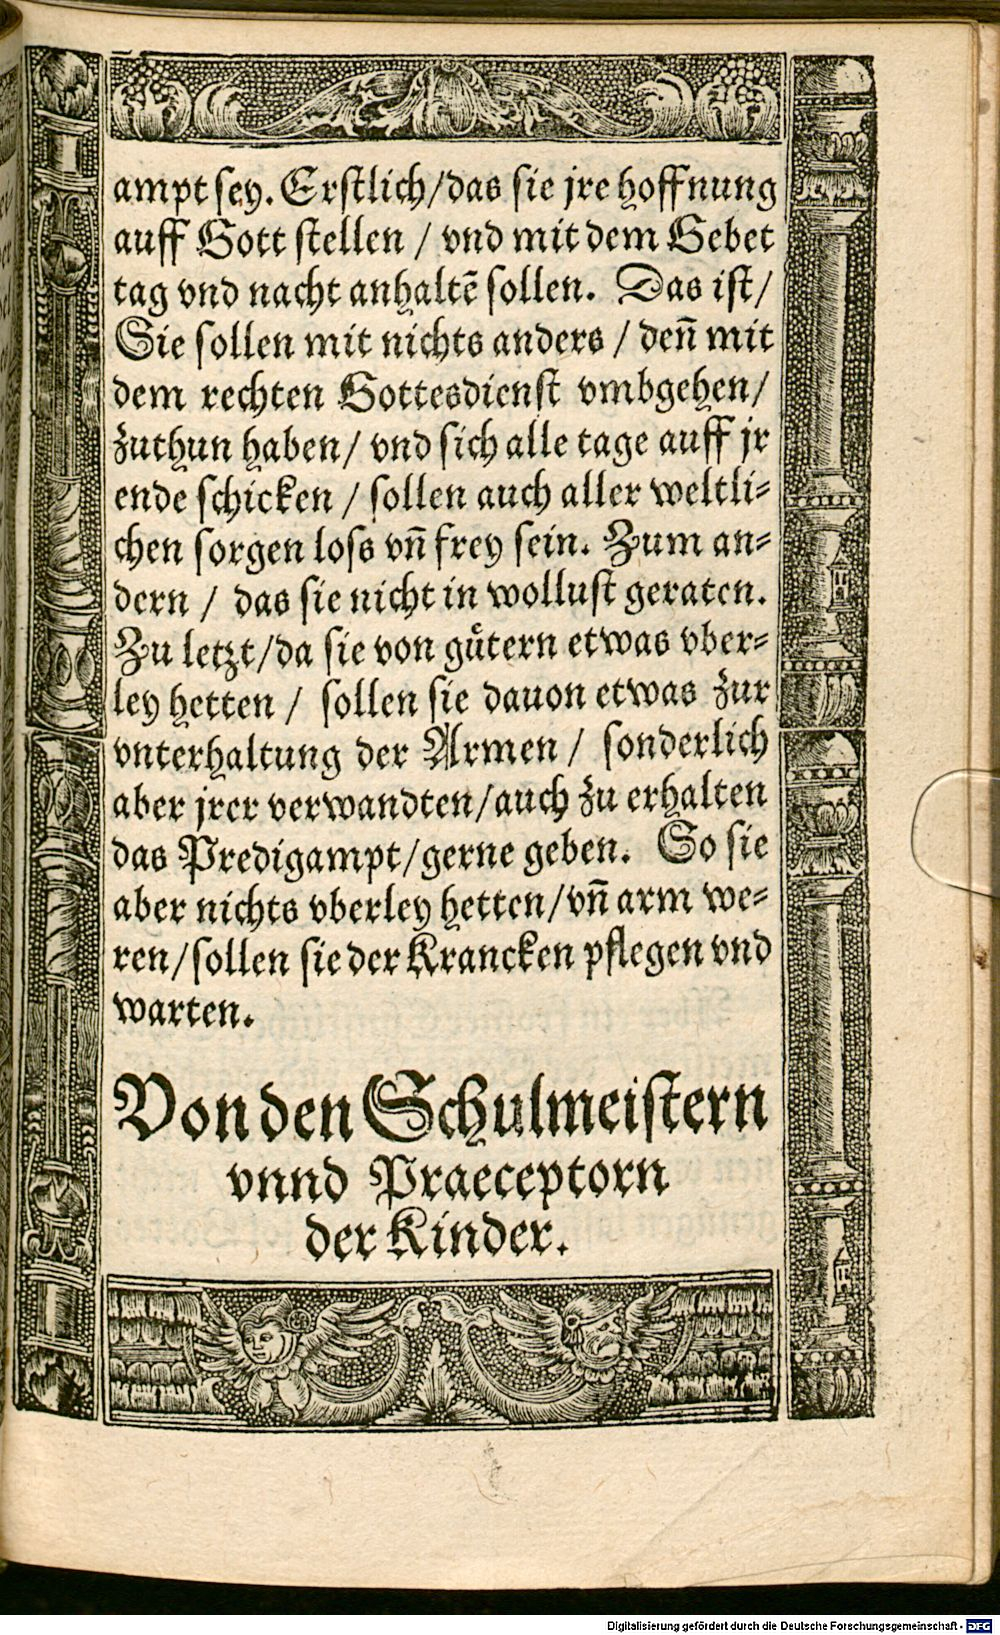 ampt sey. Erstlich/das sie jre hoffnung
auff Gott stellen / vnd mit dem Gebet
tag vnd nacht anhaltē sollen. Das ist/
Sie sollen mit nichts anders / deñ mit
dem rechten Gottesdienst vmbgehen/
zuthun haben/ vnd sich alle tage auff jr
ende schicken / sollen auch aller weltli-
chen sorgen loss vñ frey sein. Zum an-
dern / das sie nicht in wollust geraten.
Zu letzt/da sie von guͤtern etwas vber-
ley hetten / sollen sie dauon etwas zur
vnterhaltung der Armen / sonderlich
aber jrer verwandten/auch zu erhalten
das Predigampt/gerne geben. So sie
aber nichts vberley hetten/vñ arm we-
ren/sollen sie der Krancken pflegen vnd
warten.
Von den Schulmeistern
vnnd Praeceptorn
der Kinder.
Digitalisierung gefördert durch die Deutsche Forschungsgemeinschaft - DFG